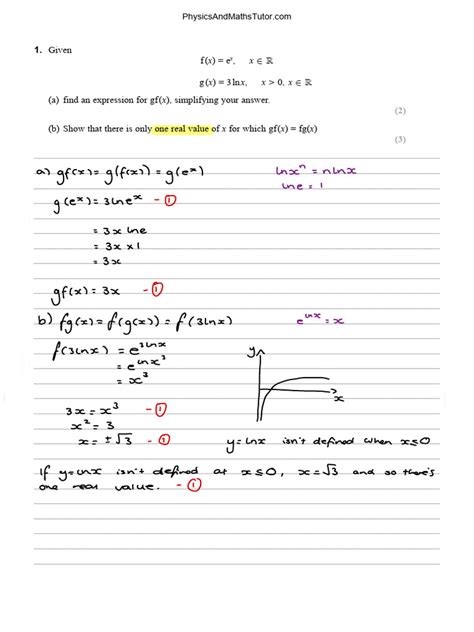 PhysicsAndMathsTutor.com
1. Given
f(x) = eˣ, x ∈ ℝ
g(x) = 3 ln x, x > 0, x ∈ ℝ
(a) find an expression for gf(x), simplifying your answer.
(2)
(b) Show that there is only one real value of x for which gf(x) = fg(x)
(3)
a) gf(x) = g(f(x)) = g(eˣ) lnxⁿ = nlnx
lne = 1
g(eˣ) = 3lneˣ - ①
= 3x lne
= 3x × 1
= 3x
gf(x) = 3x - ①
b) fg(x) = f(g(x)) = f(3lnx) e^(lnx) = x
f(3lnx) = e^(3lnx) y
= e^(lnx³)
= x³
x
3x = x³ - ①
x² = 3
x = ± √3 - ① y = lnx isn't defined when x ≤ 0
If y = lnx isn't defined at x ≤ 0, x = √3 and so there's
one real value. - ①